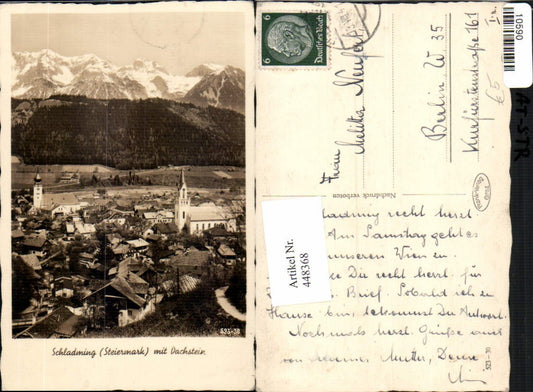 523-30
Schladming (Steiermark) mit Dachstein.
6 6
Deutsches Reich
Frau Melitta
Berlin W 35
Kurfürstenstraße 161
Nachdruck verboten
Artikel Nr.
448368
recht herzl.
Am Samstag geht es
unseren Wien zu.
Die recht herzl. für
Brief. Sobald ich zu
Hause bin, bekommst Du Antwort.
Nochmals herzl. Grüße auch
von meiner Mutter, Deine
523-30
10590
€ 5
AT-STR